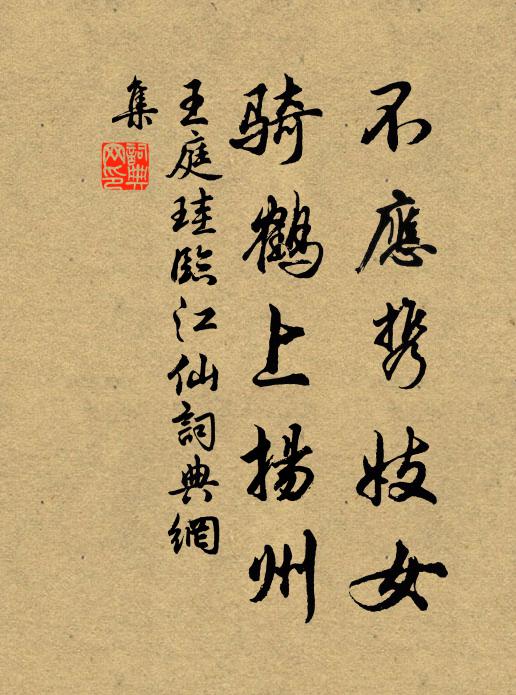 不應携妓女
騎鶴上揚州
王庭珪臨江仙詞典網
集
詞典網印